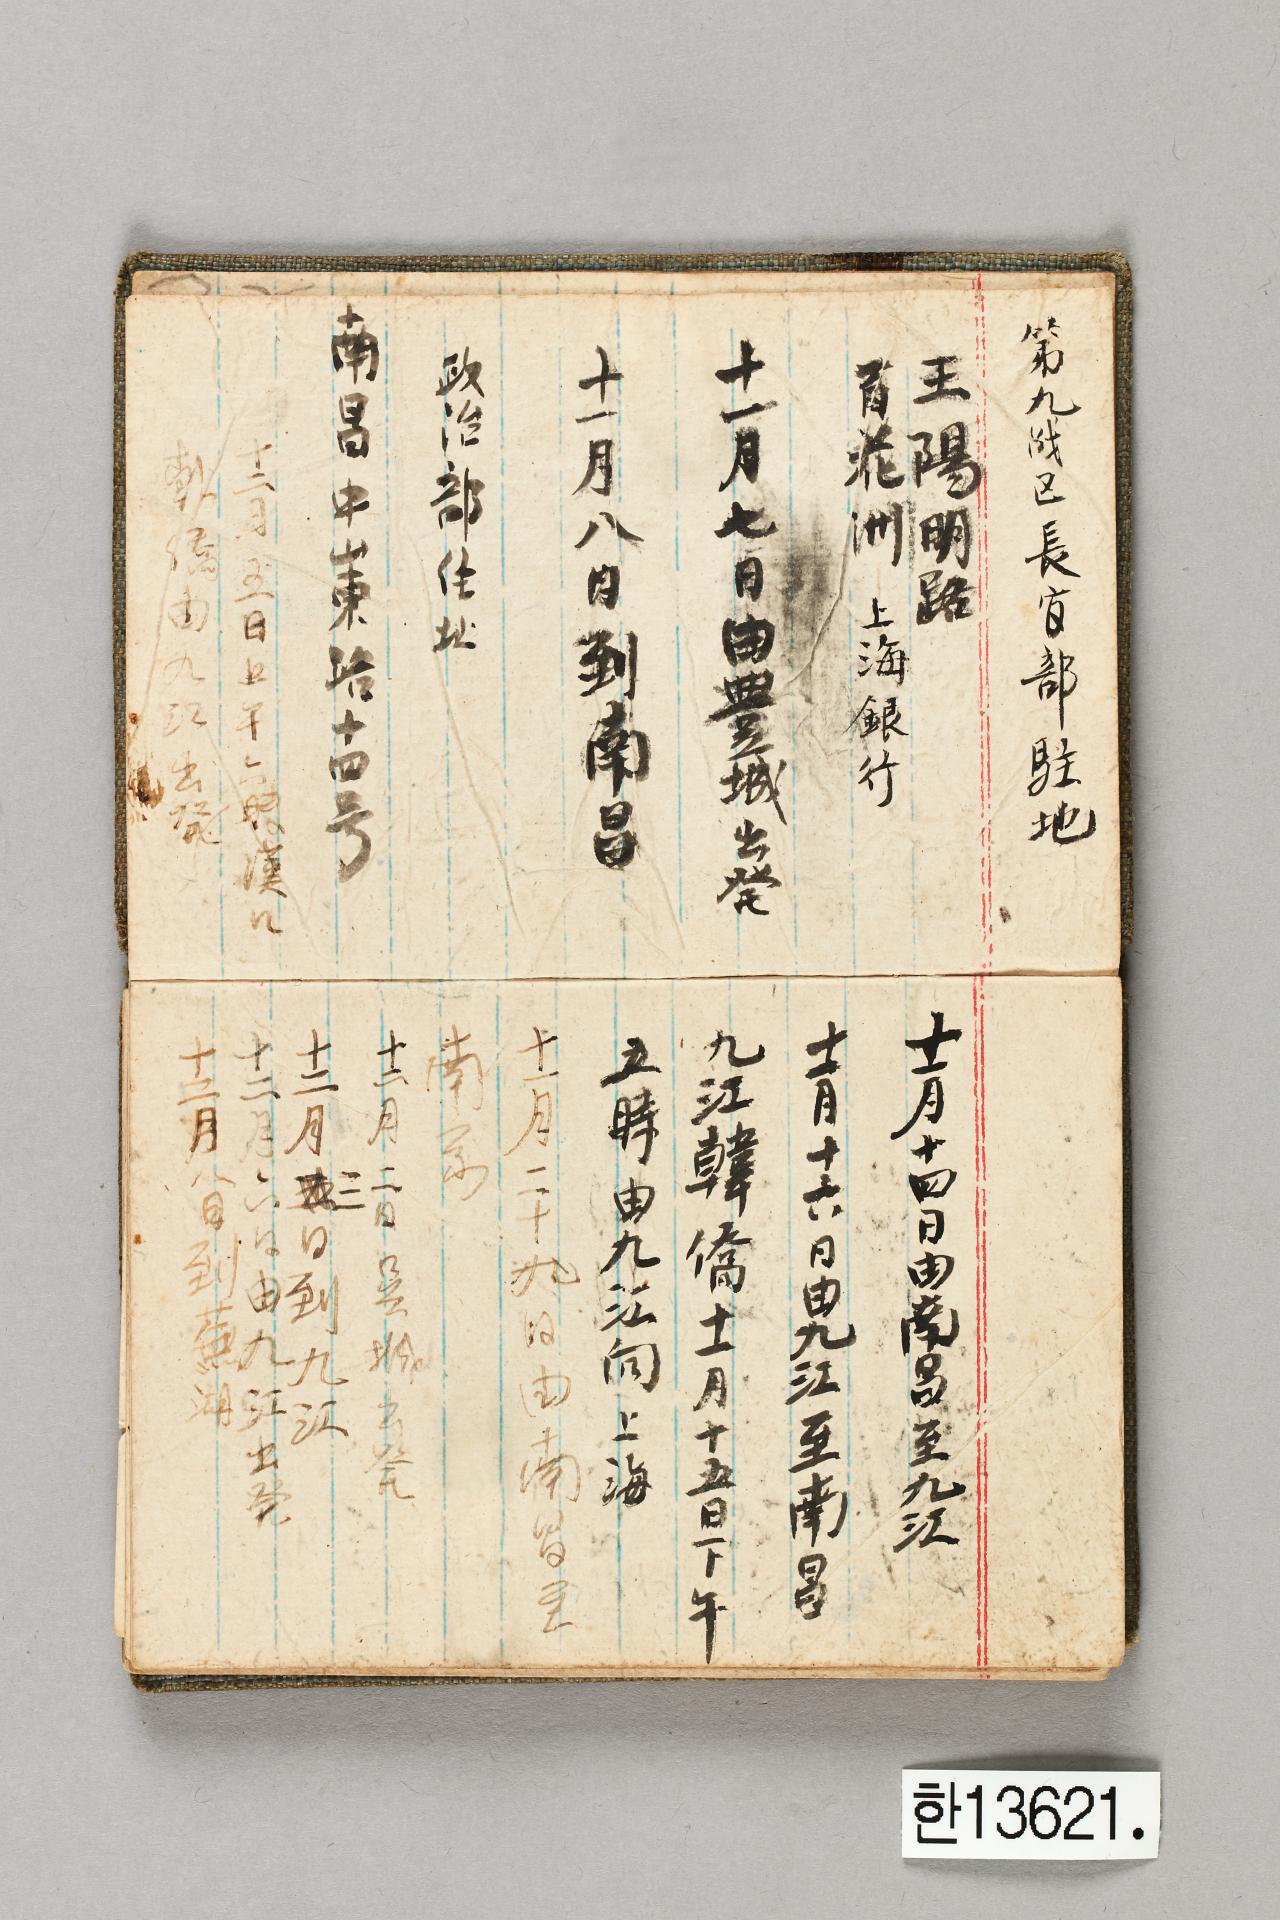 第九战区長官部駐地
王陽明路
百花洲 上海銀行
十一月七日由豊城出発
十一月八日到南昌
政治部住址
南昌中山東路十四号
十二月五日上午六時漢口
韓僑由九江出発
十一月十四日由南昌至九江
十一月十六日由九江至南昌
九江韓僑十一月十五日下午
五時由九江向上海
十一月二十九日由南昌至
南京
十二月二日吳城出発
十二月三日到九江
十二月六日由九江出発
十二月八日到蕪湖
한13621.